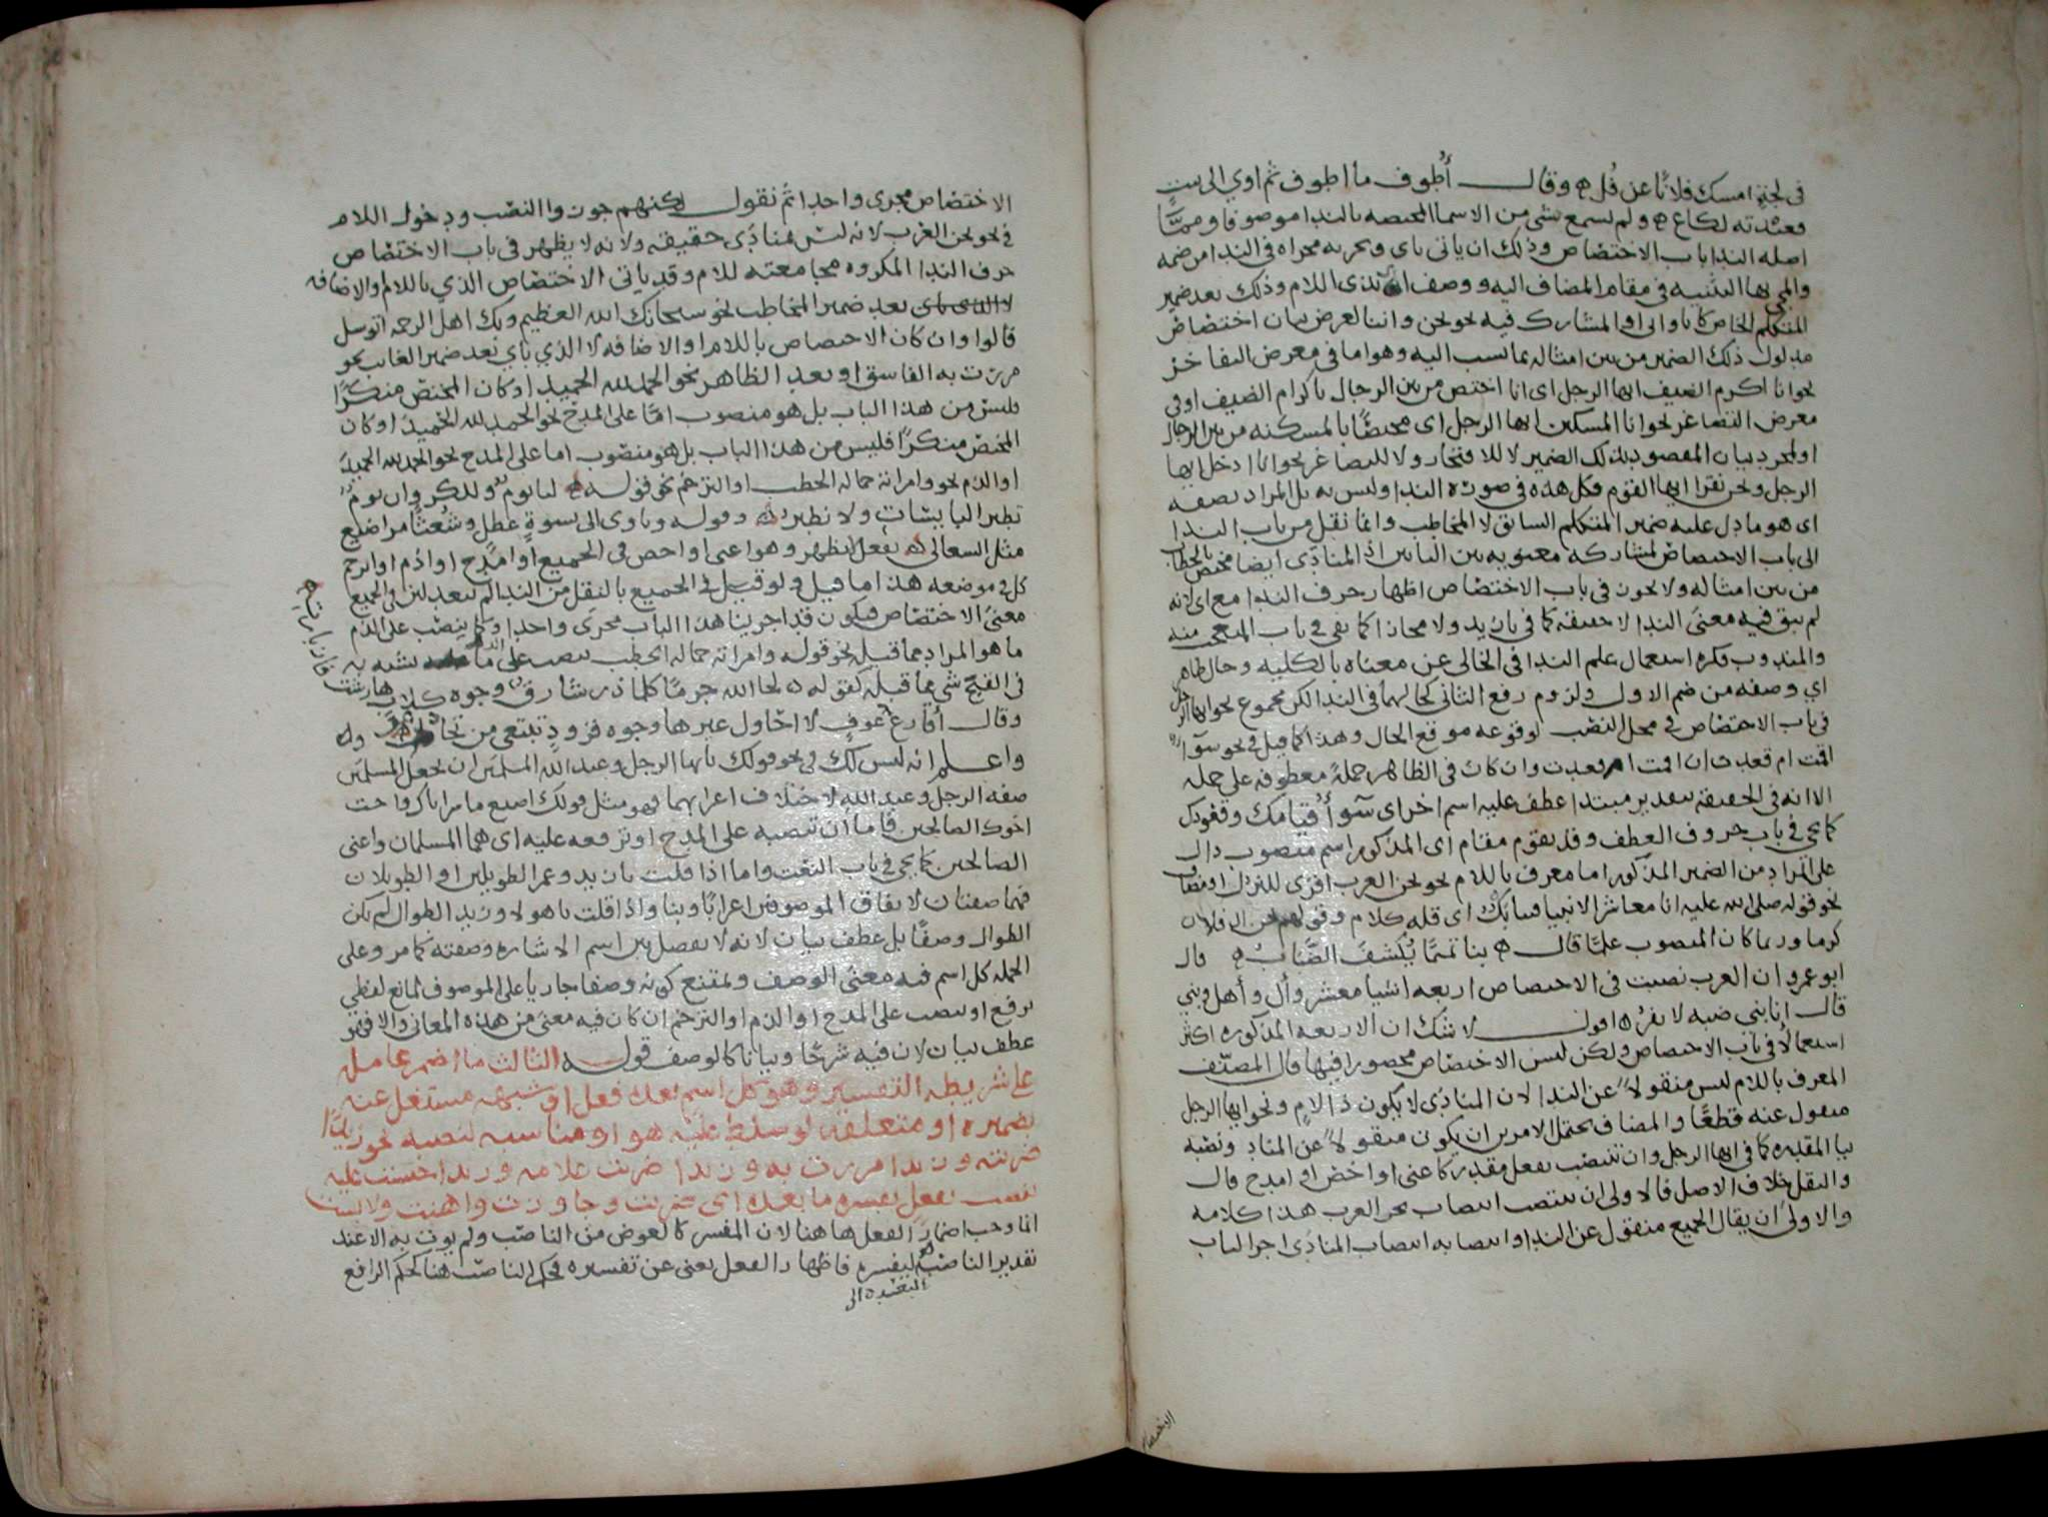 في لجة امسك فلانا عن فل ه وقال أُطوف ما اطوف ثم اوي الى بيت
قعيدته لكاع ه ولم يسمع شي من الاسما المختصه بالندا موصوفا ومما
اصله الندا باب الاختصاص وذلك ان ياتي باي وتجريه مجراه في الندا من ضمه
والمجي بها التنبيه في مقام المضاف اليه ووصف اي بذي اللام وذلك بعد ضمير
المتكلم الخاص كانا واني او المشارك فيه نحو نحن وانا لغرض بيان اختصاص
مدلول ذلك الضمير من بين امثاله بما نسب اليه وهو اما في معرض التفاخر
نحو انا اكرم الضيف ايها الرجل اى انا اختص من بين الرجال باكرام الضيف او في
معرض التصاغر نحو انا المسكين ايها الرجل اى مختصًا بالمسكنه من بين الرجال
او لمجرد بيان المقصود بذلك الضمير لا للافتخار ولا للتصاغر نحو انا ادخل ايها
الرجل ونحن نقرا ايها القوم فكل هذه في صورة الندا وليس به بل المراد بصفه
اى هو ما دل عليه ضمير المتكلم السابق لا المخاطب وانما نقل من باب الندا
الى باب الاختصاص لمشاركه معنويه بين البابين اذ المنادى ايضا مختص بالخطاب
من بين امثاله ولا يجوز في باب الاختصاص اظهار حرف الندا مع اى لانه
لم يبق فيه معنى الندا لا حقيقه كما في يا زيد ولا مجازا كما بقي في باب المتعجب منه
والمندوب فكره استعمال علم الندا في الخالى عن معناه بالكليه وحال ظاهر
اي وصفه من ضم الاول ولزوم رفع الثاني كحالهما في الندا لكن مجموع نحو ايها الرجل
في باب الاختصاص في محل النصب لوقوعه موقع الحال وهذا كما قيل في نحو سوآء
اقمت ام قعدت ان اقمت ام قعدت وان كان في الظاهر جملةً معطوفه على جمله
الا انه في الحقيقه بتقدير مبتدا عطف عليه اسم اخر اى سوآء قيامك وقعودك
كما يجي في باب حروف العطف وقد يقوم مقام اى المذكور اسم منصوب دال
على المراد من الضمير المذكور اما معرف باللام نحو نحن العرب اقرى للنزل او مضاف
نحو قوله صلى الله عليه انا معاشر الانبيا فينا بكٌ اى قله كلام وقولهم نحن ال فلان
كرما وربما كان المنصوب علما قال ه بنا تميمًا يُكشف الضبابُ ه قال
ابو عمرو ان العرب نصبت في الاختصاص اربعه اشيا معشر وآل وأهل وبني
قال انا بني ضبه لا نفر ه اقول لا شك ان الاربعه المذكوره اكثر
استعمالا في باب الاختصاص ولكن ليس الاختصاص محصورا فيها قال المصنّف
المعرف باللام ليس منقولاً عن الندا لان المنادى لا يكون ذا لامٍ ونحو ايها الرجل
منقول عنه قطعًا والمضاف يحتمل الامرين ان يكون منقولاً عن المنادى ونصبه
بيا المقدره كما في ايها الرجل وان ينتصب بفعل مقدر كاعنى او اخص او امدح قال
والنقل خلاف الاصل فالاولى ان ينتصب انتصاب نحن العرب هذا كلامه
والاولى ان يقال الجميع منقول عن الندا وانتصابه انتصاب المنادى اجرا لباب
الاختصاص
الاختصاص مجرى واحدا ثم نقول لكنهم جوزوا النصب ودخول اللام
في نحو نحن العرب لانه ليس بمنادى حقيقه ولانه لا يظهر في باب الاختصاص
حرف الندا المكروه مجامعته للام وقد ياتى الاختصاص الذي باللام والاضافه
لا الذي باى بعد ضمير المخاطب نحو سبحانك الله العظيم وبك اهل الرحمه اتوسل
قالوا وان كان الاختصاص باللام او الاضافه لا الذي باي بعد ضمير الغايب نحو
مررت به الفاسق او بعد الظاهر نحو الحمد لله الحميد او كان المختص منكرًا
فليس من هذا الباب بل هو منصوب امّا على المدح نحو الحمد لله الحميدَ او كان
المختص منكرًا فليس من هذا الباب بل هو منصوب اما على المدح نحو الحمد لله الحميدَ
او الذم نحو وامراته حماله الحطب او الترحم نحو قوله ه لنا يومٌ وللكروان يومٌ
تطير البايسات ولا نطير ه وقوله وياوى الى نسوةٍ عطلٍ وشُعثًا مراضيع
مثل السعالى ه بفعل لا يظهر وهو اعنى او اخص في الجميع او امدح او اذم او اترحم
كل في موضعه هذا ما قيل ولو قيل في الجميع بالنقل من الندا لم يبعد لان في الجميع
معنى الاختصاص فيكون قد اجرينا هذا الباب مجرى واحدا وكما ينصب على الذم
ما هو المراد مما قبله نحو قوله وامراته حماله الحطب ينصب على الذم ما يشبه به
في القبح شي مما قبله كقوله ه لحا الله جرمًا كلما ذر شارقٌ وجوه كلابٍ هارشت فازبارتِ ه
وقال أقارع عوفٍ لا احاول غيرها وجوه قرودٍ تبتغي من تجادع
واعلم انه ليس لك في نحو قولك يا ايها الرجل وعبد الله المسلمَين ان تجعل المسلمَين
صفه الرجل وعبد الله لاختلاف اعرابهما فهو مثل قولك اصنع ما سر اباك واحب
اخوك الصالحين فاما ان تنصبه على المدح او ترفعه عليه اى هما المسلمان واعنى
الصالحين كما يجي في باب النعت واما اذا قلت يا زيد وعمرو الطويلين او الطويلان
فهما صفتان لاتفاق الموصوفين اعرابًا وبنا واذا قلت يا هولا وزيد الطوال لم يكن
الطوال وصفًا بل عطف بيان لانه لا يفصل بين اسم الاشاره وصفته كما مر وعلى
الجمله كل اسم فيه معنى الوصف ويمتنع كونه وصفا جاريا على الموصوف لمانع لفظي
يرفع او ينصب على المدح او الذم او الترحم ان كان فيه معنى من هذه المعاني والا فهو
عطف بيان لان فيه شرحًا وبيانا كالوصف قوله الثالث ما اضمر عامله
على شريطه التفسير وهو كل اسم بعده فعل او شبهه مشتغل عنه
بضميره او متعلقه لو سلط عليه هو او مناسبه لنصبه نحو زيدًا
ضربته وزيدا مررت به وزيدا ضربت غلامه وزيدا حبست عليه
ينصب بفعل يفسره ما بعده اى ضربت وجاوزت واهنت ولابست
انما وجب اضمار الفعل هاهنا لان المفسر كالعوض من الناصب ولم يوت به الا عند
تقدير الناصب ليفسره فاظهار الفعل يغنى عن تفسيره فحكم الناصب هنا كحكم الرافع